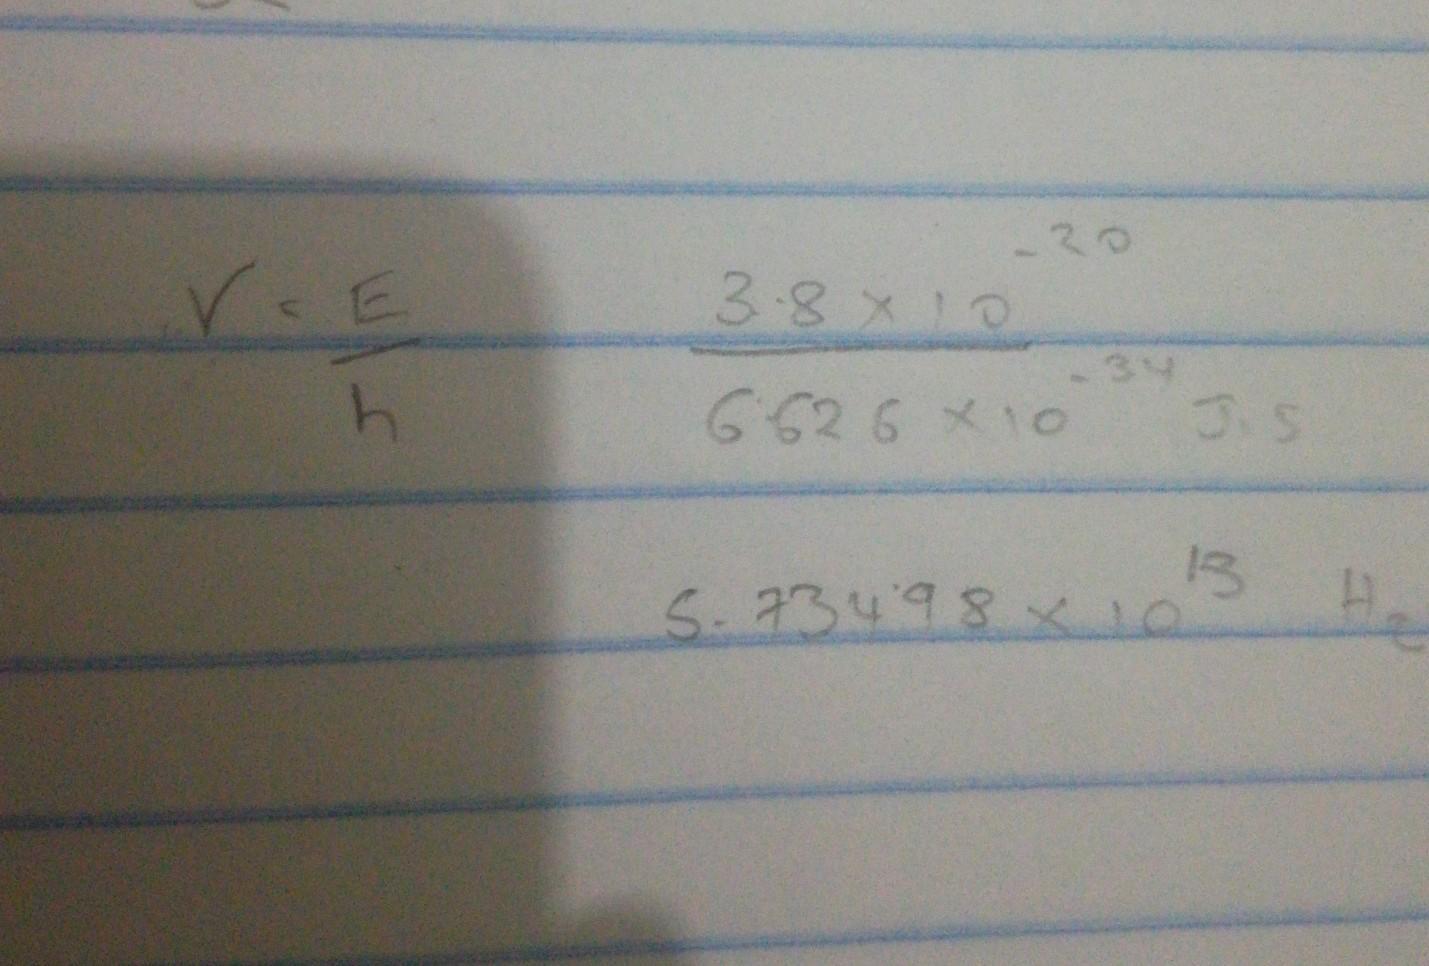 V = E / h    3.8 × 10^-20 / 6.626 × 10^-34 J.s
5.73498 × 10^13 Hz